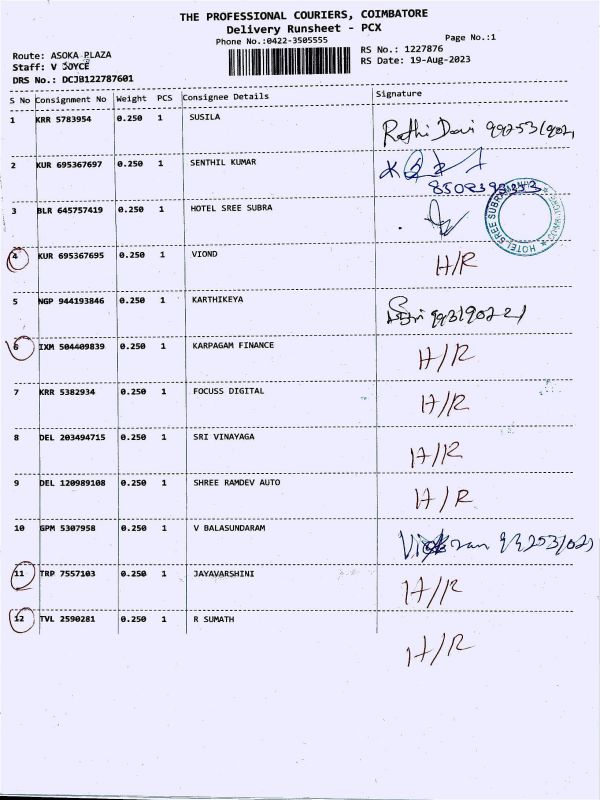 THE PROFESSIONAL COURIERS, COIMBATORE
Delivery Runsheet - PCX
Phone No.:0422-3505555
Page No.:1
Route: ASOKA PLAZA
RS No.: 1227876
Staff: V JOYCE
RS Date: 19-Aug-2023
DRS No.: DCJB122787601
S No Consignment No Weight PCS Consignee Details Signature
1 KRR 5783954 0.250 1 SUSILA Rathi Devi
2 KUR 695367697 0.250 1 SENTHIL KUMAR
3 BLR 645757419 0.250 1 HOTEL SREE SUBRA
HOTEL SREE
4 KUR 695367695 0.250 1 VIOND H/R
5 NGP 944193846 0.250 1 KARTHIKEYA
6 IXM 504409839 0.250 1 KARPAGAM FINANCE H/R
7 KRR 5382934 0.250 1 FOCUSS DIGITAL H/R
8 DEL 203494715 0.250 1 SRI VINAYAGA H/R
9 DEL 120989108 0.250 1 SHREE RAMDEV AUTO H/R
10 GPM 5307958 0.250 1 V BALASUNDARAM
11 TRP 7557103 0.250 1 JAYAVARSHINI H/R
12 TVL 2590281 0.250 1 R SUMATH H/R